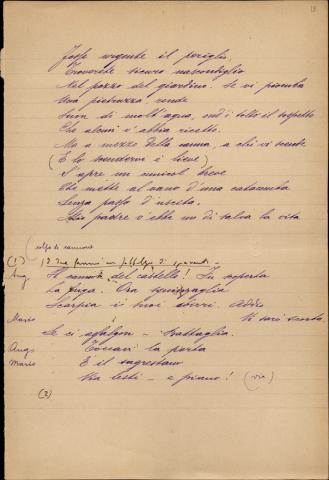 18
Fosse urgente il periglio,
Trovereste sicuro nascondiglio
Nel pozzo del giardino. Se vi piomba
Una pietruzza rende
Suon di molt'acqua, ond'è tolto il sospetto
Che alcuni v'abbia ricetto.
Ma a mezzo della canna, a chi vi scende
(E lo scendervi è lieve)
S'apre un cunicol breve
Che mette al vano d'una catacomba
Senza passo d'uscita.
Mio padre v'ebbe un dì salva la vita
colpo di cannone
(1)
Ang. Il cannon del castello! Fu scoperta
La fuga. Ora sguinzaglia
Scarpia i suoi sbirri. Addio
Mario Vi sarò scorta.
Se ci assalgon — battaglia.
Ang. Toccasi la porta
Mario È il sagrestano
Via lesti — e piano! (via)
(2)